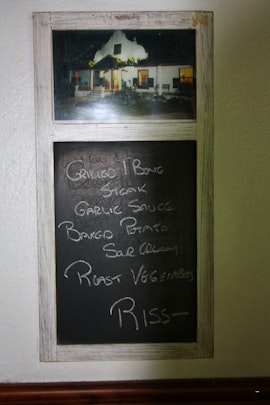 Grilled T Bone
Steak
Garlic Sauce
Baked Potato
Sour Cream
Roast Vegetables
R155-